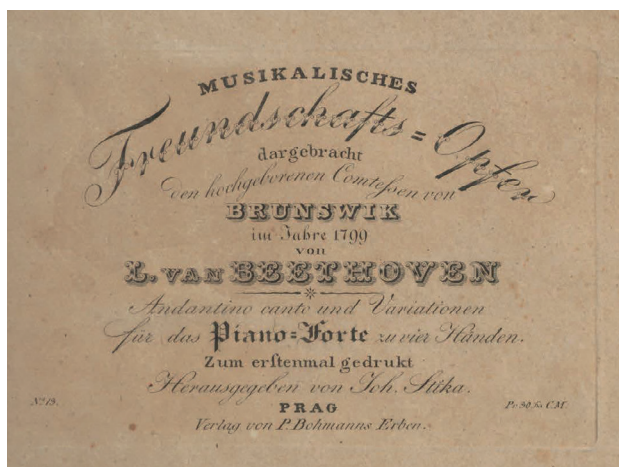 MUSIKALISCHES
Freundschafts=Opfer
dargebracht
den hochgeborenen Comteſsen von
BRUNSWIK
im Jahre 1799
VON
L. VAN BEETHOVEN
Andantino canto und Variationen
für das Piano=Forte zu vier Händen.
Zum erſtenmal gedrukt
Herausgegeben von Joh. Stika.
Nº 19.
PRAG
Verlag von P. Bohmanns Erben.